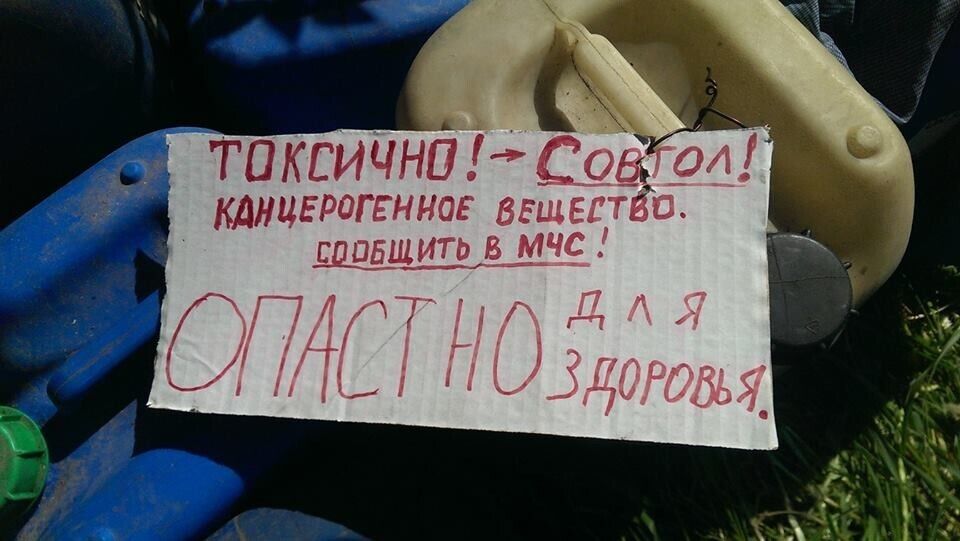 ТОКСИЧНО! → СОВТОЛ!
КАНЦЕРОГЕННОЕ ВЕЩЕСТВО.
СООБЩИТЬ В МЧС!
ОПАСТНО ДЛЯ
ЗДОРОВЬЯ.